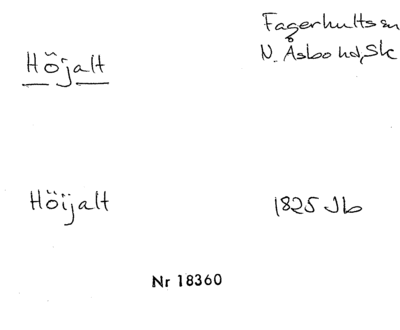 Fagerhults sn
Höjalt
N. Åsbo hd, Sk
Höijalt 1825 Jb
Nr 18360